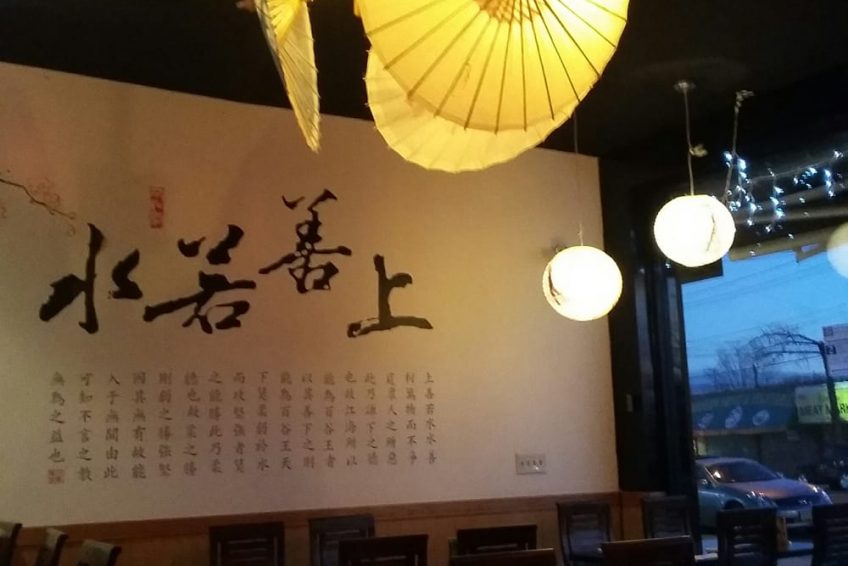 上善若水
上善若水水善
利萬物而不爭
處衆人之所惡
此乃謙下之德
也故江海所以
能為百谷王者
以其善下之則
能為百谷王天
下莫柔弱於水
而攻堅強者莫
之能勝此乃柔
德也故柔之勝
剛弱之勝強堅
因其無有故能
入于無間由此
可知不言之教
無為之益也
MEAT MARK